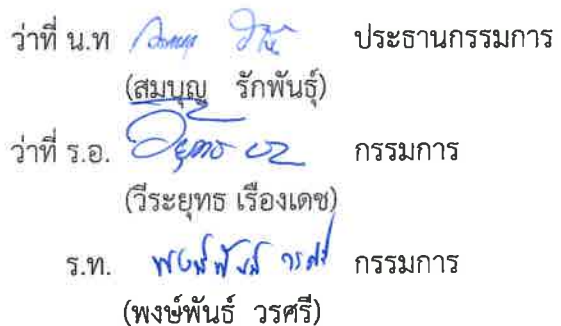 ว่าที่ น.ท ประธานกรรมการ
(สมบุญ รักพันธุ์)
ว่าที่ ร.อ. กรรมการ
(วีระยุทธ เรืองเดช)
ร.ท. พงษ์พันธ์ วรศรี กรรมการ
(พงษ์พันธ์ วรศรี)